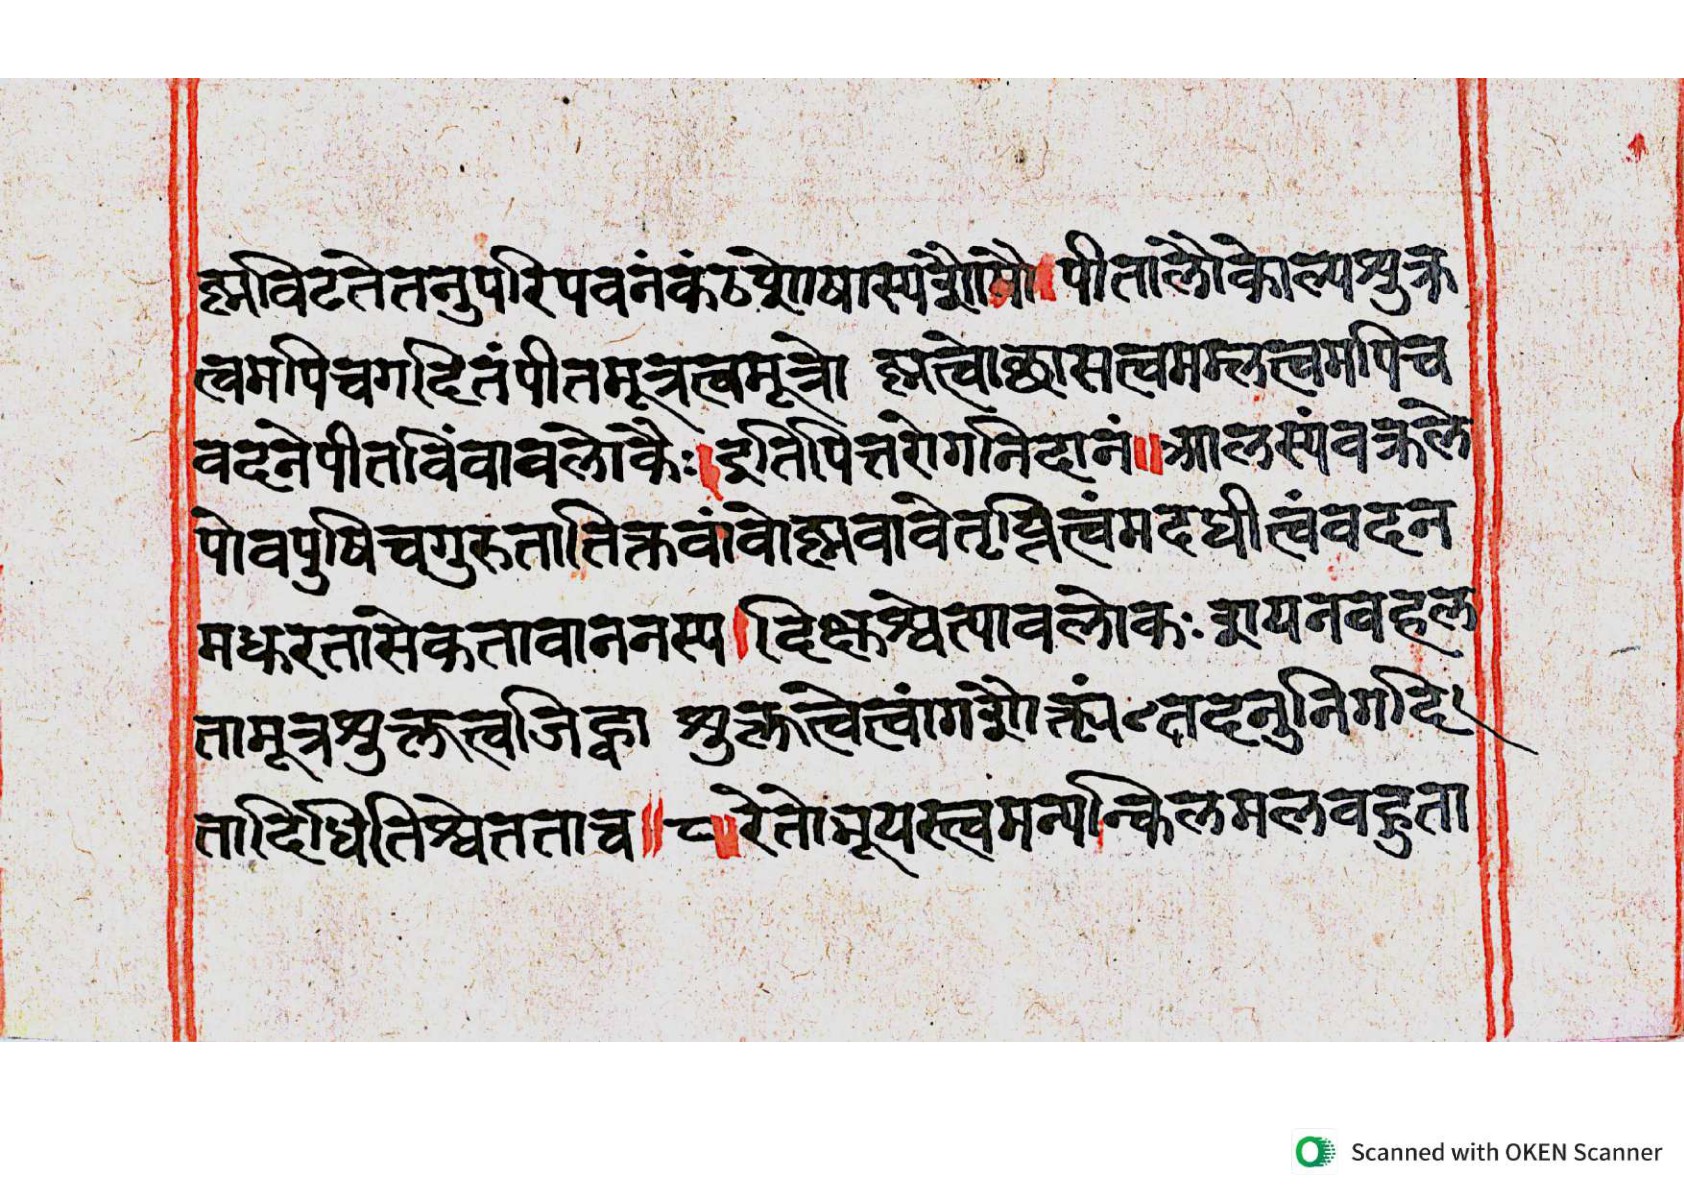 ह्मविटतेतनुपरिपवनंकंठशोषास्यशोषौ। पीतालोकोल्पशुक्र
त्वमपिचगदितंपीतमूत्रत्वमूत्रो ह्मत्वोच्छासत्वमम्लत्वमपिच
वदनेपीतविंवावलोकैः। इतिपित्तरोगनिदानं॥ आलस्यंवक्रले
पोवपुषिचगुरुतातिक्तवांवोह्मवावेतृप्तित्वंमदधीत्वंवदन
मधुरतासेकतावाननस्य। दिक्षुश्वेत्यावलोकः शयनवहल
तामूत्रशुक्लत्वजिह्वा शुक्लत्वेत्वांगशौक्ल्यंतदनुनिगदि
तादिधितिश्वेतताच॥ ८॥ रेतोमूयस्त्वमन्यन्किलमलवहुता
Scanned with OKEN Scanner